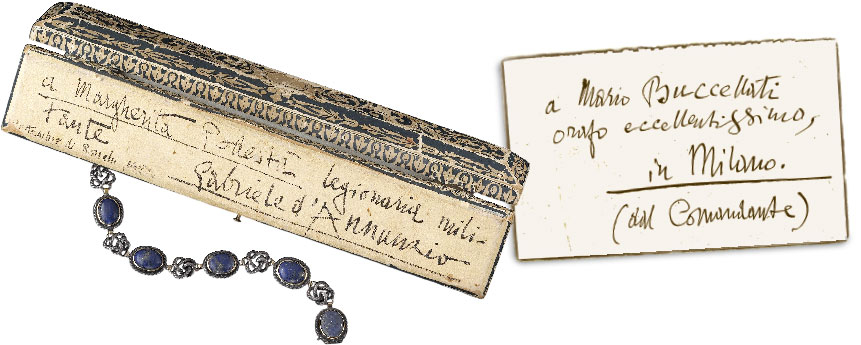 a Margherita Podestì legionaria mili-
Fante
Gabriele d'Annunzio
a Mario Buccellati
orafo eccellentissimo,
in Milano.
(dal Comandante)